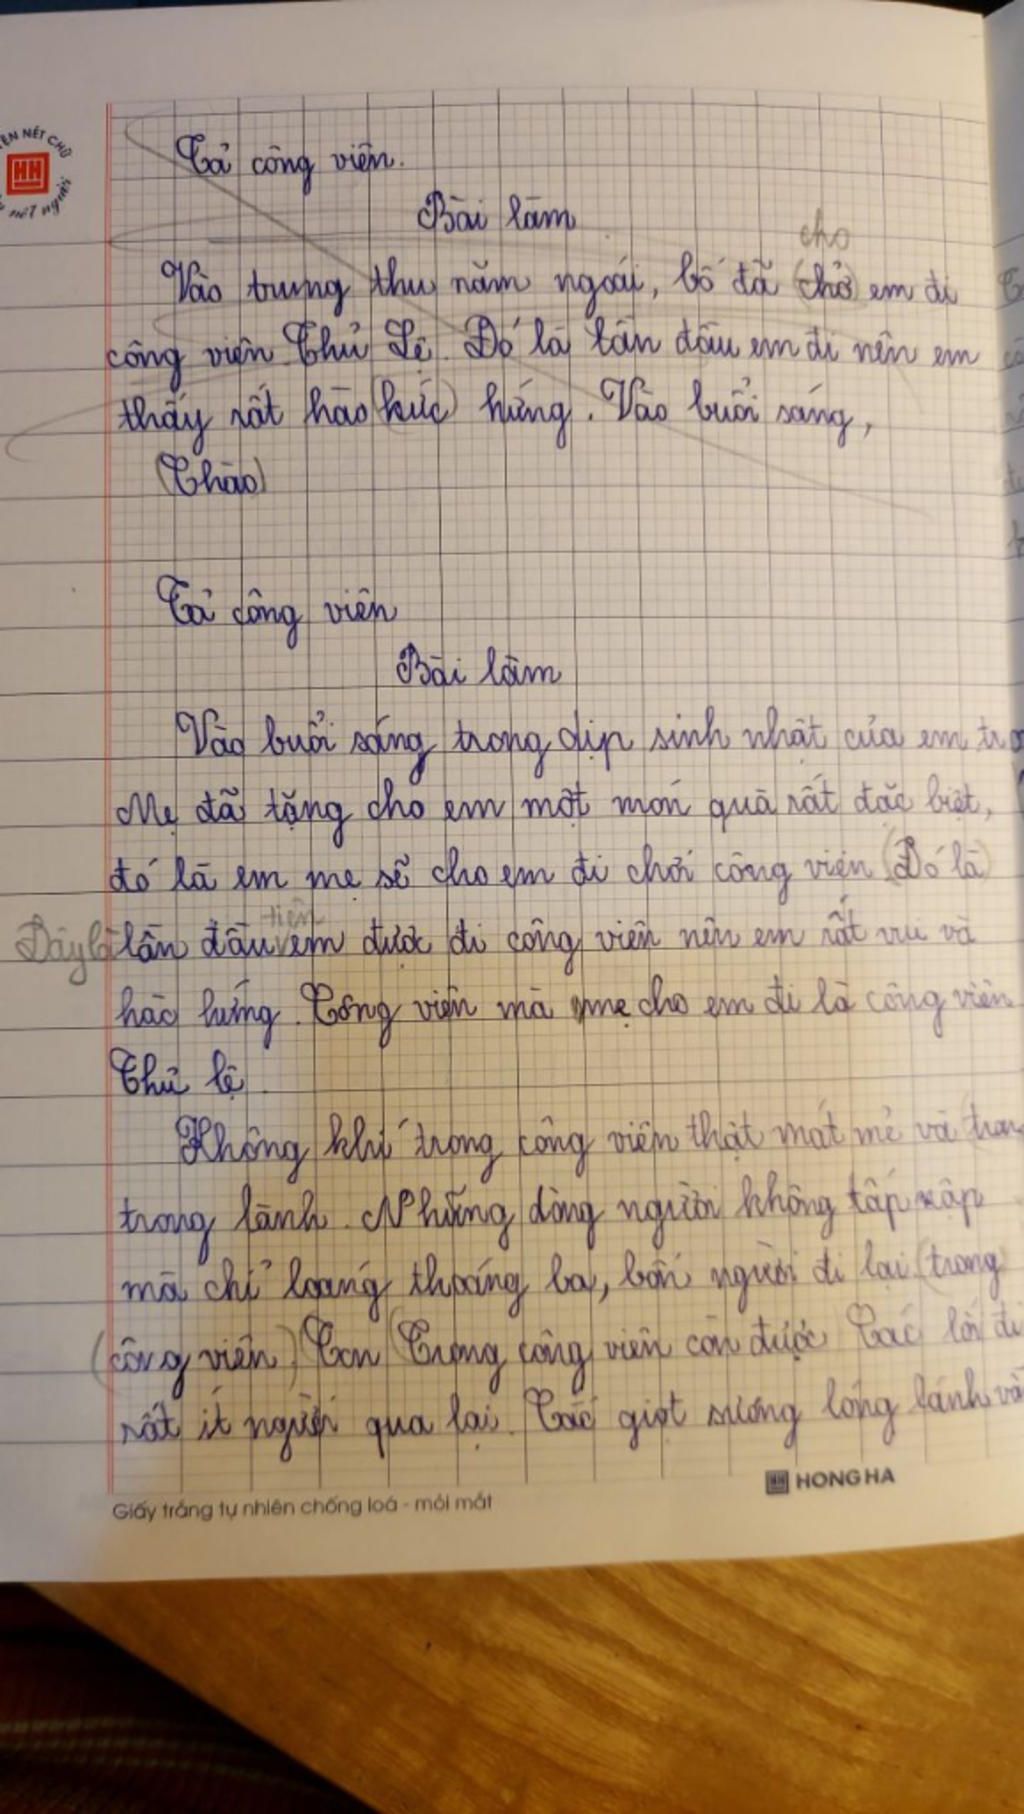 Tả công viên.
Bài làm
cho
Vào trung thu năm ngoái, bố đã (chở) em đi
công viên Thủ Lệ. Đó là lần đầu em đi nên em
thấy rất hào (hức) hứng. Vào buổi sáng,
(Thào)
Tả công viên
Bài làm
Vào buổi sáng trong dịp sinh nhật của em
Mẹ đã tặng cho em một món quà rất đặc biệt,
đó là em mẹ sẽ cho em đi chơi công viên (Đó là)
tiên
Đây là lần đầu em được đi công viên nên em rất vui và
hào hứng. Công viên mà mẹ cho em đi là công viên
Thủ lệ.
Không khí trong công viên thật mát mẻ và
trong lành. Những dòng người không tấp nập
mà chỉ loáng thoáng ba, bốn người đi lại (trong
(công viên) Con (Trong công viên còn được Các lối đi
rất ít người qua lại. Các giọt sương lóng lánh và
HH
HONG HA
Giấy trắng tự nhiên chống loá - mỏi mắt